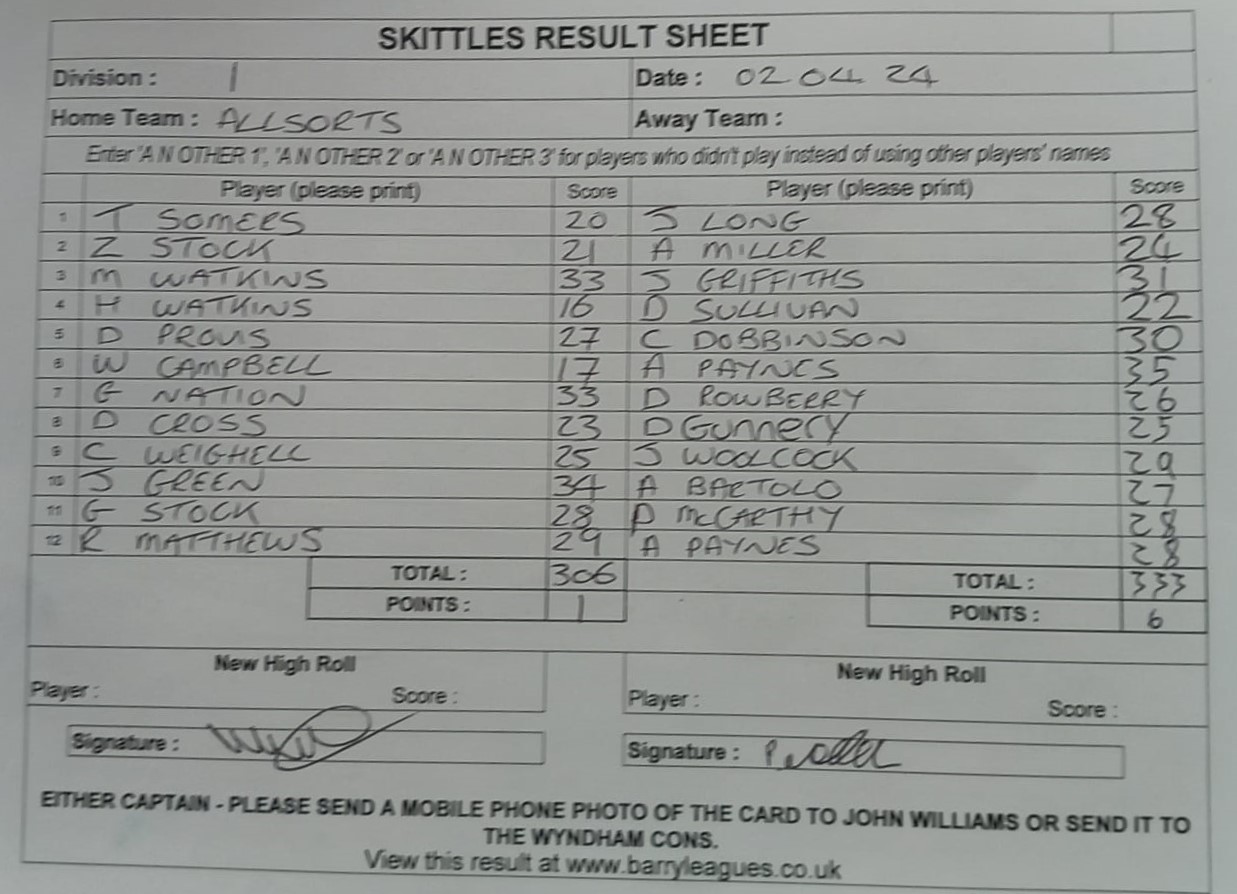 SKITTLES RESULT SHEET
Division : 1 Date : 02 04 24
Home Team : ALLSORTS Away Team :
Enter 'A N OTHER 1', 'A N OTHER 2' or 'A N OTHER 3' for players who didn't play instead of using other players' names
Player (please print) Score Player (please print) Score
1 T SOMERS 20 J LONG 28
2 Z STOCK 21 A MILLER 24
3 M WATKINS 33 J GRIFFITHS 31
4 H WATKINS 16 D SULLIVAN 22
5 D PROVIS 27 C DOBBINSON 30
6 W CAMPBELL 17 A PAYNES 35
7 G NATION 33 D ROWBERRY 26
8 D CROSS 23 D Gunnery 25
9 C WEIGHELL 25 J WOOLCOCK 29
10 J GREEN 34 A BARTOLO 27
11 G STOCK 28 P McCARTHY 28
12 R MATTHEWS 29 A PAYNES 28
TOTAL : 306 TOTAL : 333
POINTS : 1 POINTS : 6
New High Roll New High Roll
Player : Score : Player : Score :
Signature : Signature :
EITHER CAPTAIN - PLEASE SEND A MOBILE PHONE PHOTO OF THE CARD TO JOHN WILLIAMS OR SEND IT TO
THE WYNDHAM CONS.
View this result at www.barryleagues.co.uk